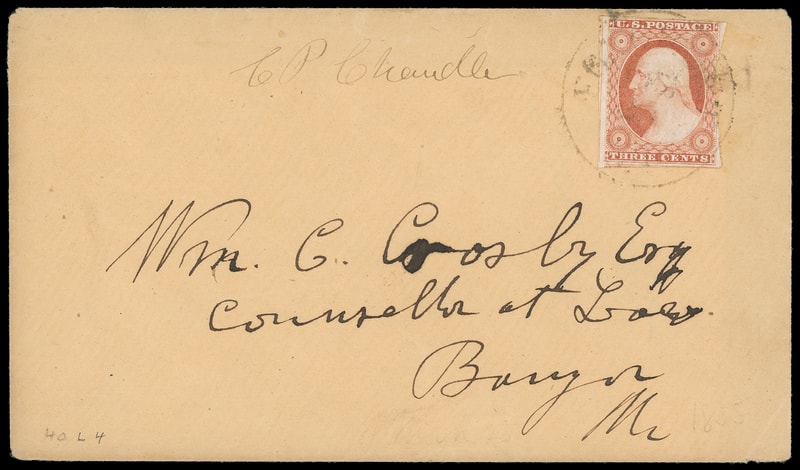 U.S. POSTAGE
THREE CENTS
C P Chandler
Wm. C. Crosby Esq
Counsellor at Law.
Bangor
Me
1855
40 L 4